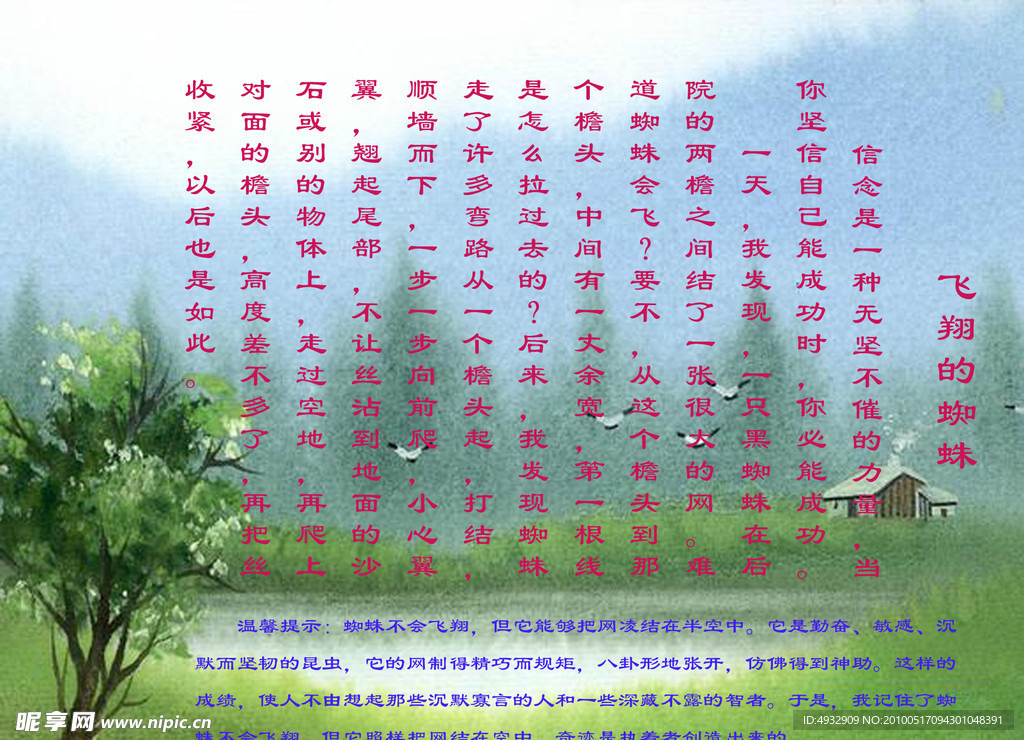 飞翔的蜘蛛
信念是一种无坚不催的力量，当
你坚信自己能成功时，你必能成功。
一天，我发现，一只黑蜘蛛在后
院的两檐之间结了一张很大的网。难
道蜘蛛会飞？要不，从这个檐头到那
个檐头，中间有一丈余宽，第一根线
是怎么拉过去的？后来，我发现蜘蛛
走了许多弯路从一个檐头起，打结，
顺墙而下，一步一步向前爬，小心翼
翼，翘起尾部，不让丝沾到地面的沙
石或别的物体上，走过空地，再爬上
对面的檐头，高度差不多了，再把丝
收紧，以后也是如此。
温馨提示：蜘蛛不会飞翔，但它能够把网凌结在半空中。它是勤奋、敏感、沉
默而坚韧的昆虫，它的网制得精巧而规矩，八卦形地张开，仿佛得到神助。这样的
成绩，使人不由想起那些沉默寡言的人和一些深藏不露的智者。于是，我记住了蜘
蛛不会飞翔，但它照样把网结在空中。奇迹是执着者创造出来的
昵享网 www.nipic.cn
ID:4932909 NO:20100517094301048391